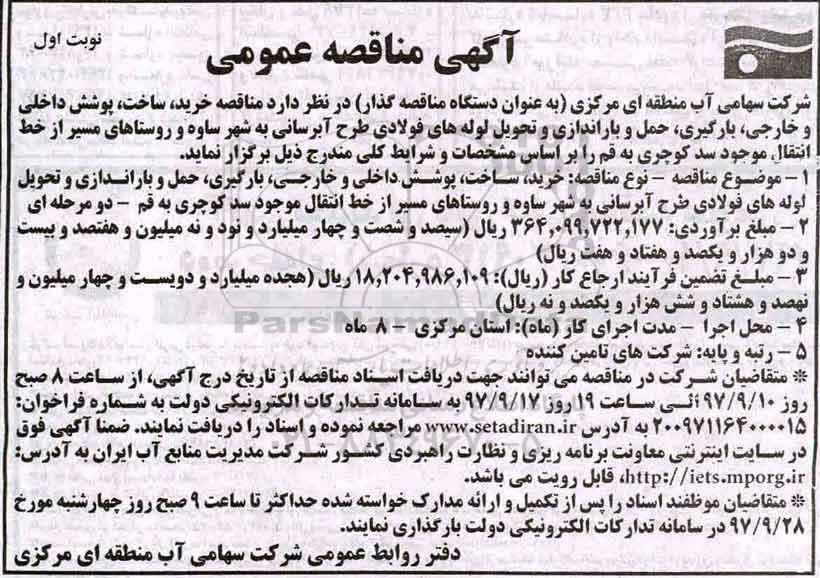 نوبت اول
آگهی مناقصه عمومی
شرکت سهامی آب منطقه ای مرکزی (به عنوان دستگاه مناقصه گذار) در نظر دارد مناقصه خرید، ساخت، پوشش داخلی
و خارجی، بارگیری، حمل و باراندازی و تحویل لوله های فولادی طرح آبرسانی به شهر ساوه و روستاهای مسیر از خط
انتقال موجود سد کوچری به قم را بر اساس مشخصات و شرایط کلی مندرج ذیل برگزار نماید.
۱ – موضوع مناقصه – نوع مناقصه: خرید، ساخت، پوشش داخلی و خارجی، بارگیری، حمل و باراندازی و تحویل
لوله های فولادی طرح آبرسانی به شهر ساوه و روستاهای مسیر از خط انتقال موجود سد کوچری به قم – دو مرحله ای
۲ – مبلغ برآوردی: ۳۶۴,۰۹۹,۷۲۲,۱۷۷ ریال (سیصد و شصت و چهار میلیارد و نود و نه میلیون و هفتصد و بیست
و دو هزار و یکصد و هفتاد و هفت ریال)
۳ – مبلغ تضمین فرآیند ارجاع کار (ریال): ۱۸,۲۰۴,۹۸۶,۱۰۹ ریال (هجده میلیارد و دویست و چهار میلیون و
نهصد و هشتاد و شش هزار و یکصد و نه ریال)
۴ – محل اجرا – مدت اجرای کار (ماه): استان مرکزی – ۸ ماه
۵ – رتبه و پایه: شرکت های تامین کننده
* متقاضیان شرکت در مناقصه می توانند جهت دریافت اسناد مناقصه از تاریخ درج آگهی، از ساعت ۸ صبح
روز ۹۷/۹/۱۰ الی ساعت ۱۹ روز ۹۷/۹/۱۷ به سامانه تدارکات الکترونیکی دولت به شماره فراخوان:
۲۰۰۹۷۱۱۶۴۰۰۰۰۱۵ به آدرس www.setadiran.ir مراجعه نموده و اسناد را دریافت نمایند. ضمنا آگهی فوق
در سایت اینترنتی معاونت برنامه ریزی و نظارت راهبردی کشور شرکت مدیریت منابع آب ایران به آدرس:
http://iets.mporg.ir، قابل رویت می باشد.
* متقاضیان موظفند اسناد را پس از تکمیل و ارائه مدارک خواسته شده حداکثر تا ساعت ۹ صبح روز چهارشنبه مورخ
۹۷/۹/۲۸ در سامانه تدارکات الکترونیکی دولت بارگذاری نمایند.
دفتر روابط عمومی شرکت سهامی آب منطقه ای مرکزی
ParsNamadData